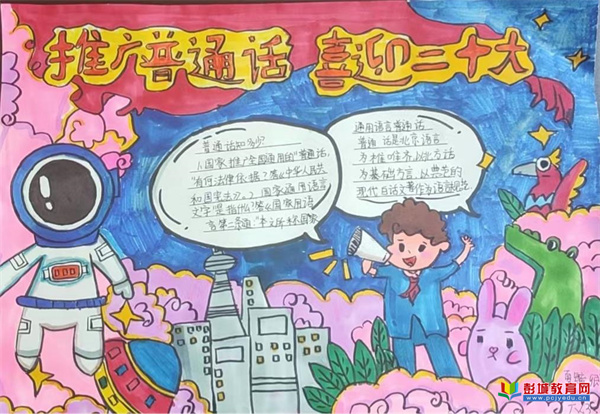 推广普通话 喜迎二十大
普通话知多少?
1.国家推广全国通用的"普通话,
"有何法律依据?《中华人民共
和国宪法》。2.国家通用语言
文字"是指什么?
通用语言普通话
普通话是北京语言
为标准音,以北方话
为基础方言,以典范的
现代白话文著作为语法规范
彭城教育网
www.pcjyedu.cn